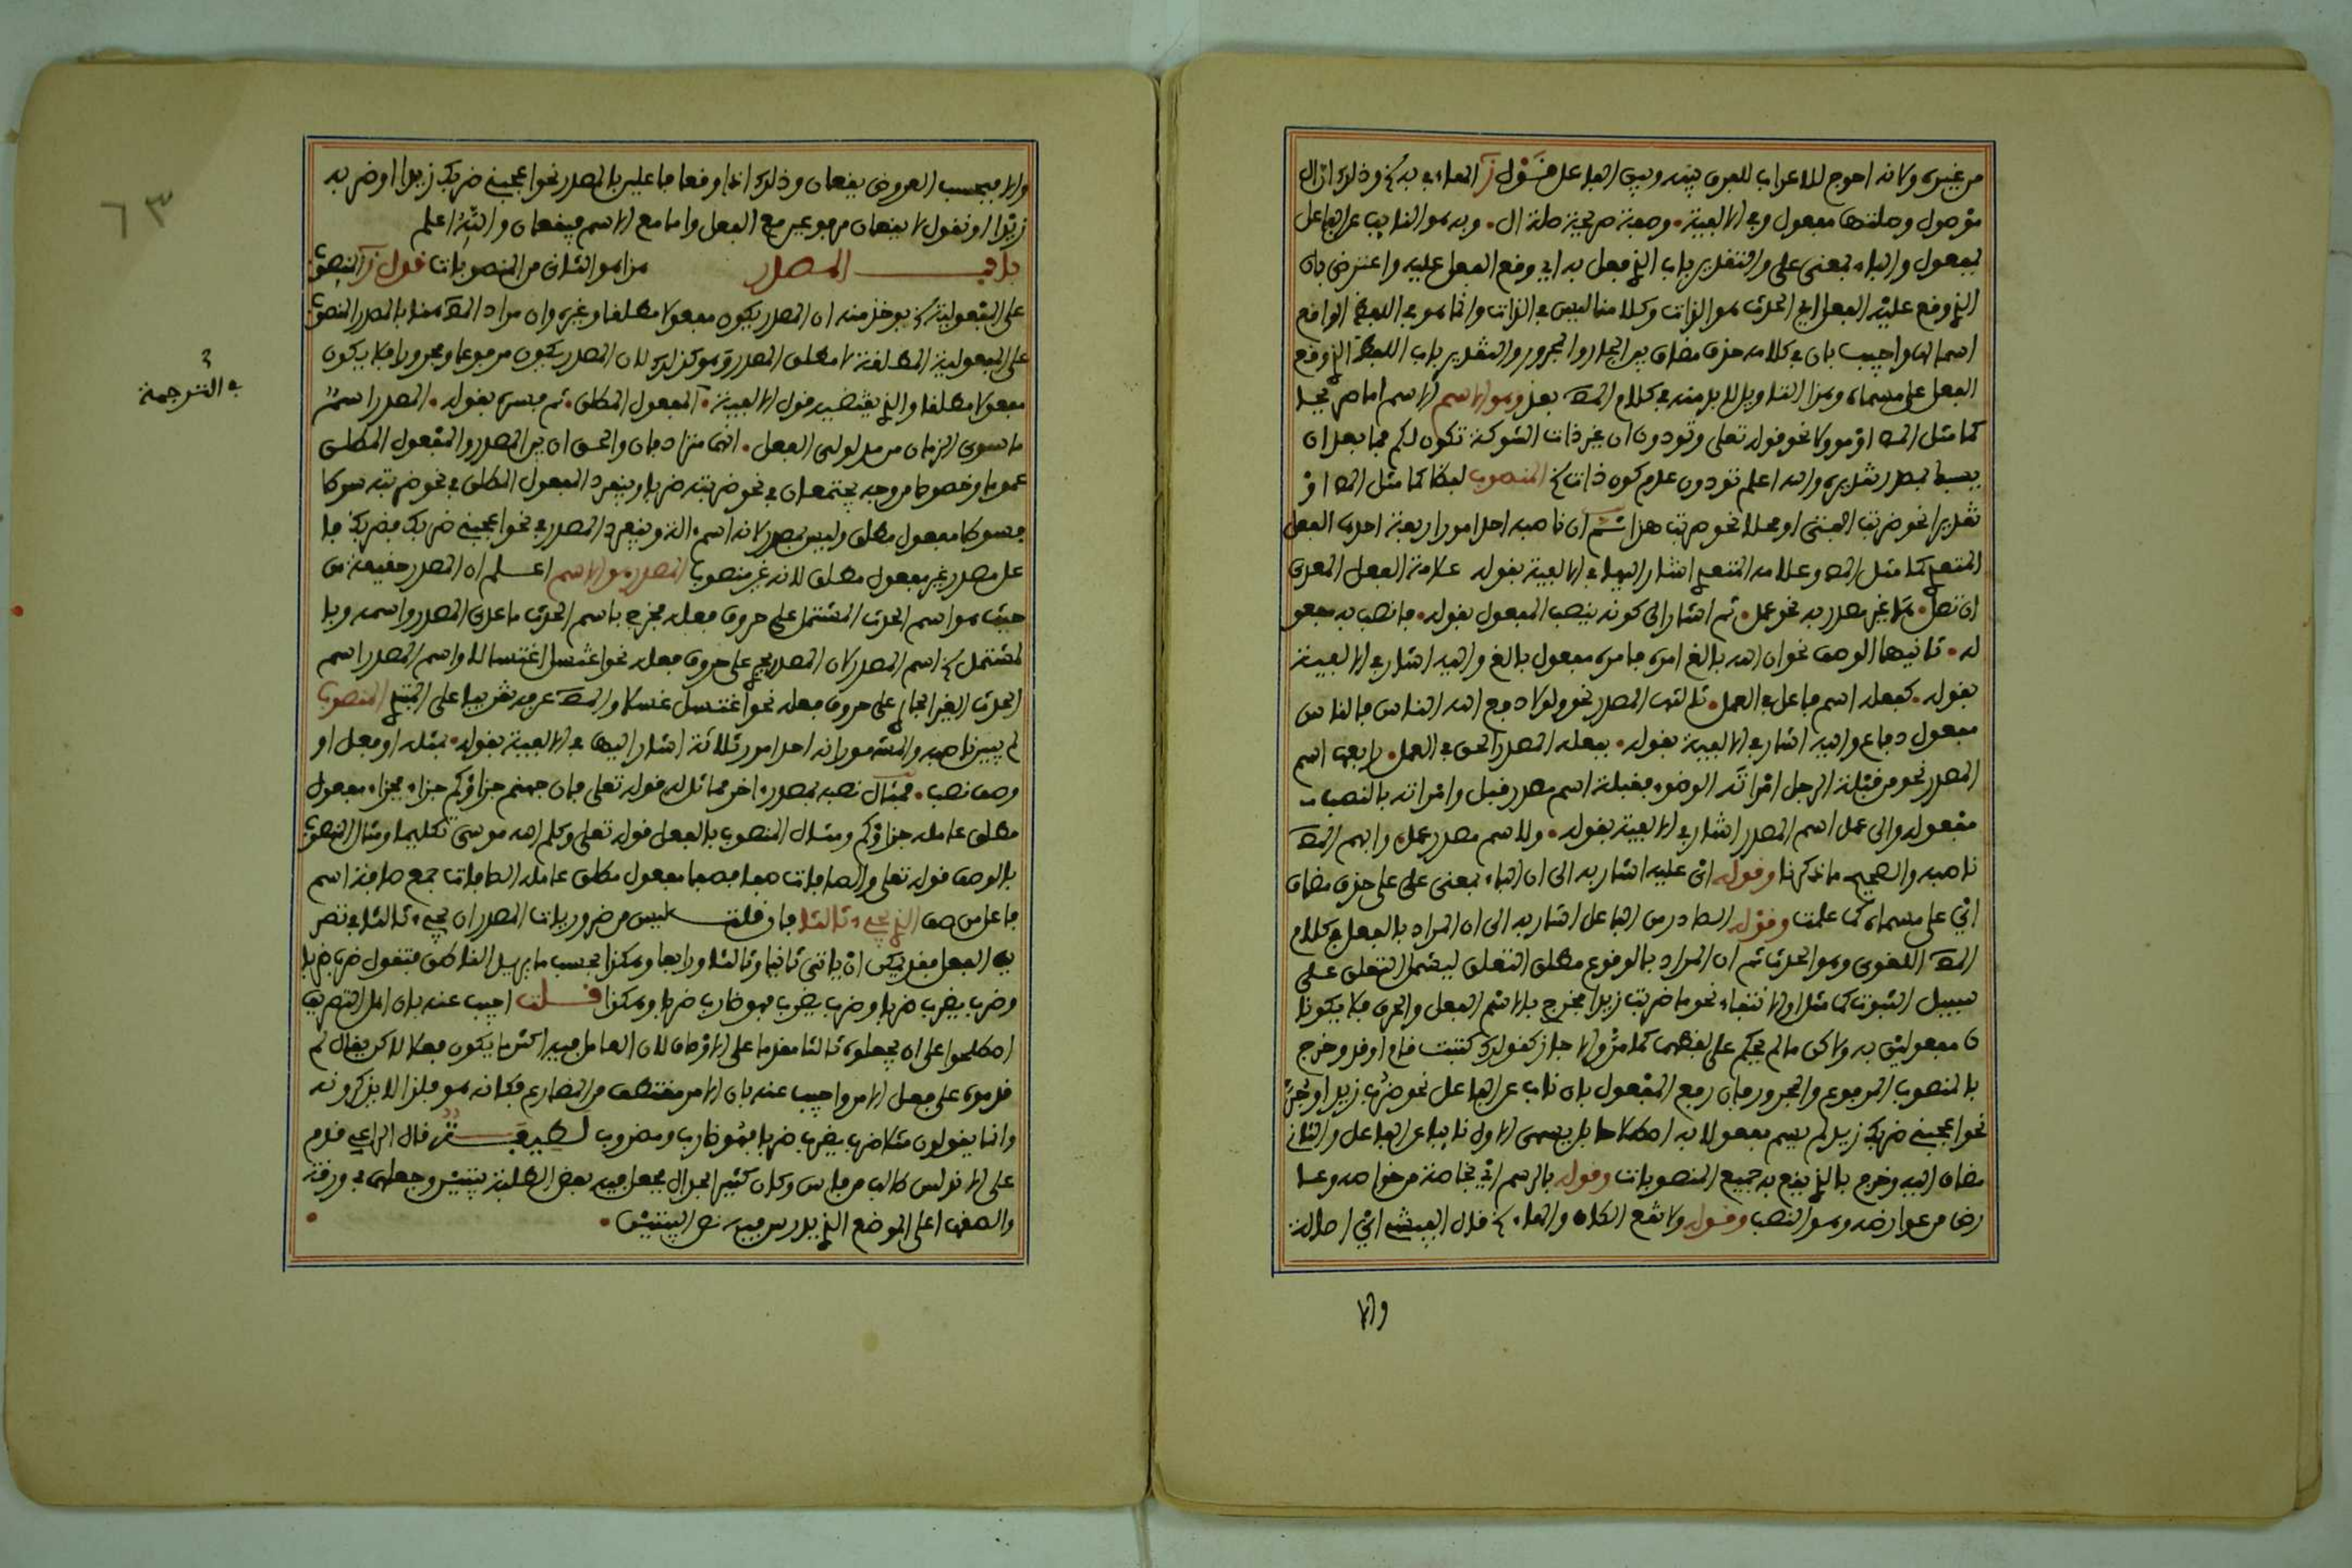 من غيره ولانه احوج للاعراب للفرق بينه وبين الفاعل قول ز المفاعيل به وذلك ان ال
موصول وصلتها مفعول وفي الالفية وصفة صريحة صلة ال وبه هو النايب عن الفاعل
لمفعول والباء بمعنى على والتقدير باب الذي فعل به اي وقع الفعل عليه واعترض بان
الذي وقع عليه الفعل اي الحدث هو الذات وكلامنا ليس في الذات وانما هو في اللفظ الواقع
اسما لها واجيب بان في كلامه حذف مضاف بين الجار والمجرور والتقدير باب اللفظ الذي وقع
الفعل على مسماه وهذا التاويل لا بد منه في كلام المص بعد وهو الاسم الاسم اما صريحا
كما مثل المص او موولا نحو قوله تعلى وتودون ان غير ذات الشوكة تكون لكم فما بعد ان
يسبك بمصدر تقديره والله اعلم تودون عدم كون ذات المنصوب لفظا كما مثل المص او
تقديرا نحو ضربت الفتى او محلا نحو ضربت هذا ثم ان ناصبه احد امور اربعة احدها الفعل
المتعدي كما مثل المص وعلامة المتعدي اشار اليها في الالفية بقوله علامة الفعل المعدى
ان تصل ها غير مصدر به نحو عمل ثم اشار الى كونه ينصب المفعول بقوله فانصب به مفعو
له ثانيها الوصف نحو ان الله بالغ امره فامره مفعول بالغ واليه اشار في الالفية
بقوله كفعله اسم فاعل في العمل ثالثها المصدر نحو ولولا دفع الله الناس فالناس
مفعول دفاع واليه اشار في الالفية بقوله بفعله المصدر الحق في العمل رابعها اسم
المصدر نحو من قبلة الرجل امراته الوضوء فقبلة اسم مصدر قبل وامراته بالنصب
مفعوله والى عمل اسم المصدر اشار في الالفية بقوله ولاسم مصدر عمل وابهم المص
ناصبه والصحيح ما ذكرنا وقوله اي عليه اشار به الى ان الباء بمعنى على على حذف مضاف
اي على مسماه كما علمت وقوله الصادر من الفاعل اشار به الى ان المراد بالفعل في كلام
المص اللغوي وهو الحدث ثم ان المراد بالوقوع مطلق التعلق ليشمل التعلق على
سبيل الثبوت كما مثل او الانتفاء نحو ما ضربت زيدا فخرج بالاسم الفعل والحرف فلا يكونا
ن مفعولين به ولاكن ما لم يحكم على لفظهما كما مر والا جاز كقولك كتبت قام او قد وخرج
بالمنصوب المرفوع والمجرور فان رفع المفعول بان ناب عن الفاعل نحو ضرب زيد او جر
نحو اعجبني ضربك زيد لم يسم مفعولا به اصطلاحا بل يسمى الاول نايبا عن الفاعل والثاني
مضاف اليه وخرج بالذي يقع به جميع المنصوبات وقوله بالرسم اي بخاصة من خواصه وعا
رض من عوارضه وهو النصب وقوله ولا تقع الكاف والهاء قال الفيشي اي اصالة
والا
والا فبحسب العروض يقعان وذلك اذا وقعا فاعلين بالمصدر نحو اعجبني ضربك زيدا او ضربه
زيدا او نقول لا يقعان مرفوعين مع الفعل واما مع الاسم فيقعان والله اعلم
باب المصدر هذا هو الثاني من المنصوبات قول ز المنصوب
على المفعولية يوخذ منه ان المصدر يكون مفعولا مطلقا وغيره وان مراد المص هنا بالمصدر المنصوب
على المفعولية المطلقة لا مطلق المصدر وهو كذلك لان المصدر يكون مرفوعا ومجرورا فلا يكون
مفعولا مطلقا والذي يقتضيه قول الالفية المفعول المطلق ثم فسره بقوله المصدر اسم
ما سوى الزمان من مدلولي الفعل انهما مترادفان والحق ان بين المصدر والمفعول المطلق
عموما وخصوصا من وجه يجتمعان في نحو ضربته ضربا وينفرد المفعول المطلق في نحو ضربته سوطا
فسوطا مفعول مطلق وليس بمصدر لانه اسم الة وينفرد المصدر في نحو اعجبني ضربك فضربك فا
عل مصدر غير مفعول مطلق لانه غير منصوب المصدر هو الاسم اعلم ان المصدر حقيقة من
حيث هو اسم الحدث المشتمل على حروف فعله فخرج باسم الحدث ما عدى المصدر واسمه وبا
لمشتمل اسم المصدر لان المصدر يجري على حروف فعله نحو اغتسل اغتسالا واسم المصدر اسم
الحدث الغير الجاري على حروف فعله نحو اغتسل غسلا والمص عرفه تقريبا على المبتدي المنصوب
لم يبين ناصبه والمشهور انه احد امور ثلاثة اشار اليها في الالفية بقوله بمثله او فعل او
وصف نصب فمثال نصبه بمصدر اخر مماثل له قوله تعلى فان جهنم جزاؤكم جزاء فجزاء مفعول
مطلق عامله جزاؤكم ومثال المنصوب بالفعل قوله تعلى وكلم الله موسى تكليما ومثال المنصوب
بالوصف قوله تعلى والصافات صفا فصفا مفعول مطلق عامله الصافات جمع صافة اسم
فاعل من صف الذي يجيء ثالثا فان قلت ليس من ضروريات المصدر ان يجيء ثالثا في تصر
يف الفعل فقد يمكن ان ياتي ثانيا وثالثا ورابعا وهكذا بحسب ما يريد الناطق فتقول ضرب ضربا
وضرب يضرب ضربا وضرب يضرب فهو ضارب ضربا وهكذا قلت اجيب عنه بان اهل التصريف
اصطلحوا على ان يجعلوه ثالثا مقدما على الاوصاف لان العامل فيه اكثر ما يكون فعلا لاكن يقال لم
قدموه على فعل الامر واجيب عنه بان الامر مقتطف من المضارع فكانه هو فلذا لا يذكرونه
وانما يقولون مثلا ضرب يضرب ضربا فهو ضارب ومضروب لطيفة قال الراعي قدم
على الاندلس طالب من فاس وكان كثير الجدال فعمل فيه بعض الطلبة بيتين وجعلهما في ورقة
والصقها على الموضع الذي يدرس فيه نص البيتين
في الترجمة
٦٣